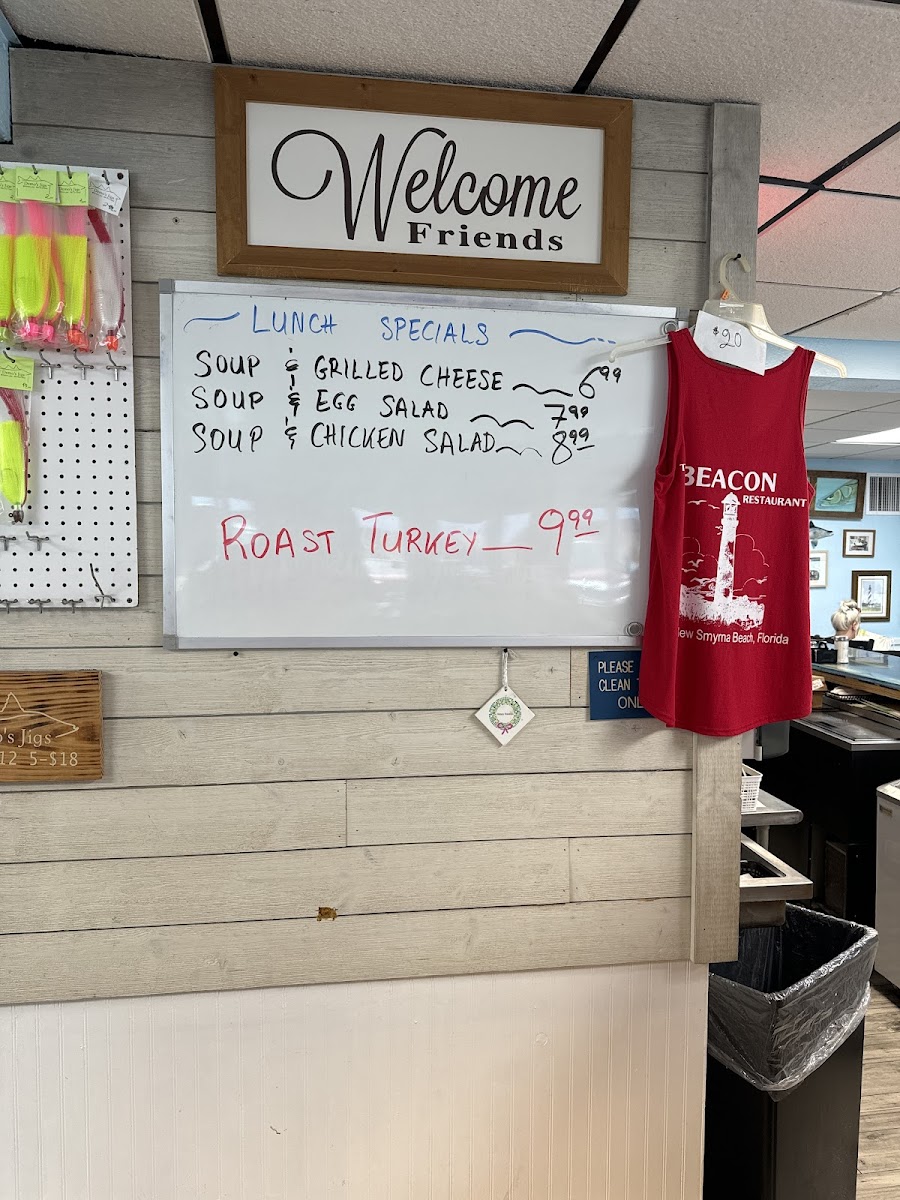 Welcome
Friends
LUNCH SPECIALS
SOUP & GRILLED CHEESE 6.99
SOUP & EGG SALAD 7.99
SOUP & CHICKEN SALAD 8.99
ROAST TURKEY — 9.99
$20
BEACON
RESTAURANT
ew Smyrna Beach, Florida
PLEASE
CLEAN
Jigs
12 5-$18